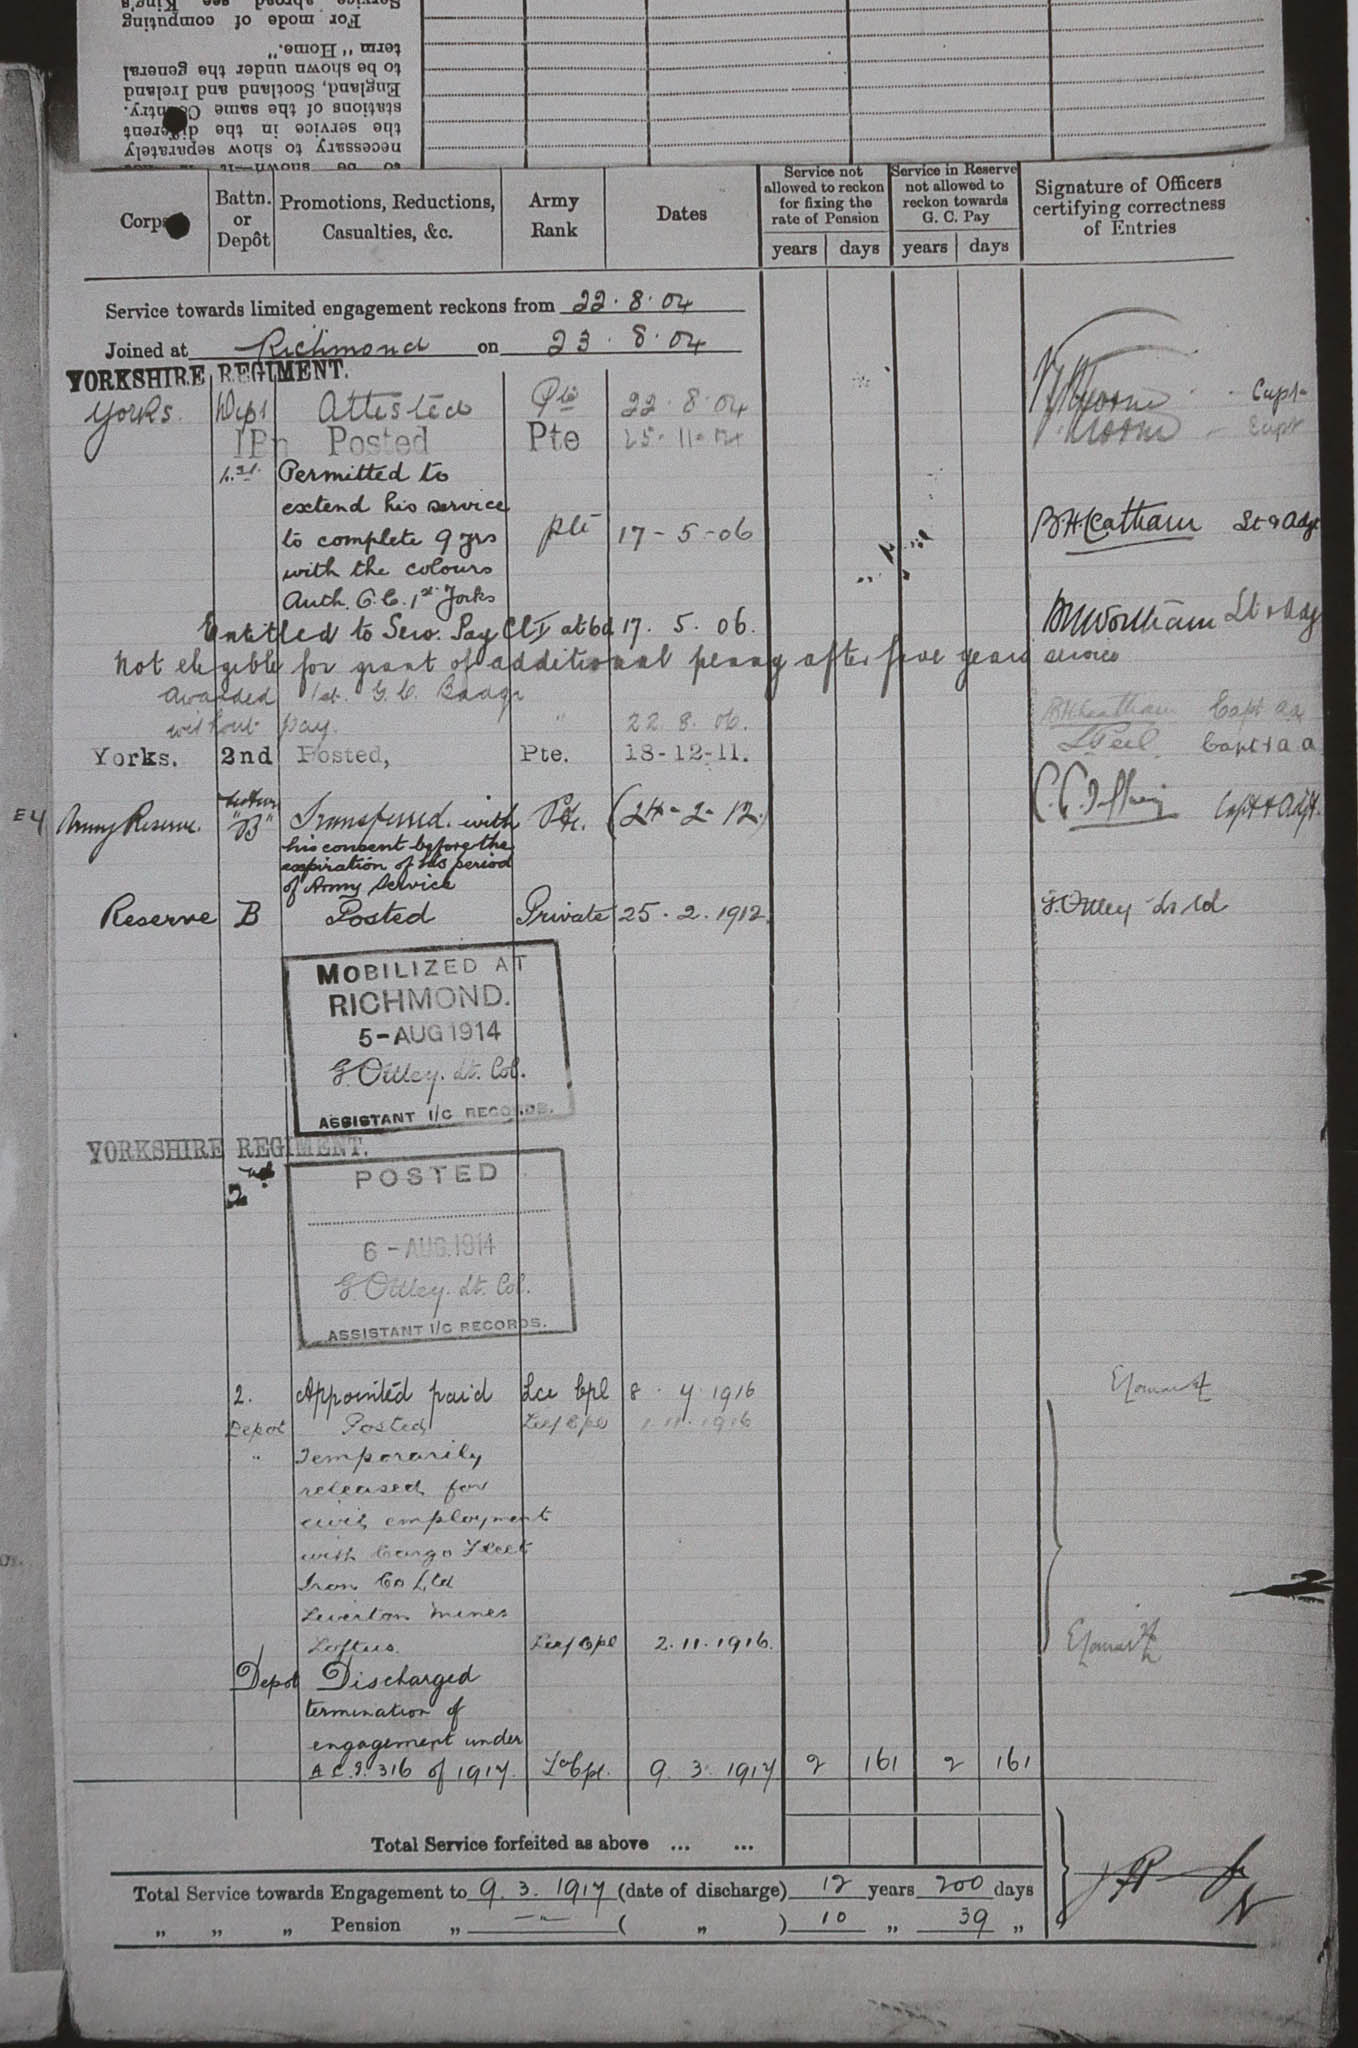 Service abroad see King's
For mode of computing
term "Home."
to be shown under the general
England, Scotland and Ireland
stations of the same Country.
the service in the different
necessary to show separately
to be shown—it is not
Corps
Battn. or Depôt
Promotions, Reductions, Casualties, &c.
Army Rank
Dates
Service not allowed to reckon for fixing the rate of Pension
years days
Service in Reserve not allowed to reckon towards G. C. Pay
years days
Signature of Officers certifying correctness of Entries
Service towards limited engagement reckons from 22.8.04
Joined at Richmond on 23.8.04
YORKSHIRE REGIMENT.
Yorks. Dept Attested Pte 22.8.04 Capt
1Bn Posted Pte 25-11-04 Capt
1st Permitted to
extend his service
to complete 9 yrs Pte 17-5-06 Lt & Adjt
with the colours
Auth. O.C. 1st Yorks
Entitled to Serv. Pay Cl I at 6d 17.5.06. Lt & Adjt
Not eligible for grant of additional penny after five years service
Awarded 1st. G.C. Badge
without pay. " 22.8.06. Capt
Yorks. 2nd Posted, Pte. 18-12-11. Capt & a.a
E4 Army Reserve. Section "B" Transferred with Pte. (24-2-12.) Capt & Adjt.
his consent before the
expiration of his period
of Army Service
Reserve B Posted Private 25.2.1912. G. Ottley Lt Col
MOBILIZED AT
RICHMOND.
5-AUG 1914
G. Ottley. Lt. Col.
ASSISTANT I/C RECORDS.
YORKSHIRE REGIMENT.
2nd
POSTED
6-AUG.1914
G. Ottley. Lt. Col.
ASSISTANT I/C RECORDS.
2. Appointed paid Lce Cpl 8.4.1916
Depot Posted Lce/Cpl 1.11.1916
" Temporarily
released for
civil employment
with Cargo Fleet
Iron Co Ltd
Liverton Mines
Loftus. Lce/Cpl 2.11.1916.
Depot Discharged
termination of
engagement under
A.C.I. 316 of 1917. L/Cpl. 9.3.1917 2 161 2 161
Total Service forfeited as above ... ...
Total Service towards Engagement to 9.3.1917 (date of discharge) 12 years 200 days
" " " Pension " ( " ) 10 " 39 "